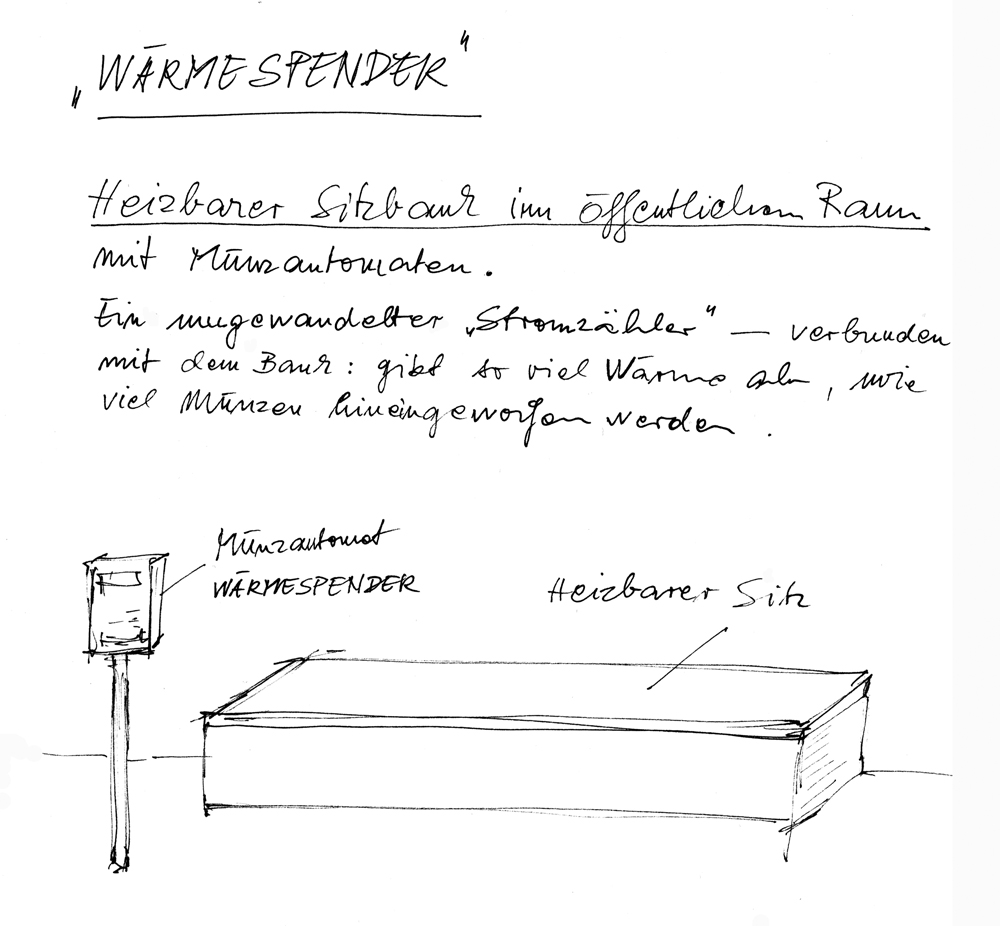 „WÄRMESPENDER"
Heizbarer Sitzbank im öffentlichen Raum
mit Münzautomaten.
Ein umgewandelter „Stromzähler" — verbunden
mit dem Bank: gibt so viel Wärme ab, wie
viel Münzen hineingeworfen werden.
Münzautomat
WÄRMESPENDER
Heizbarer Sitz